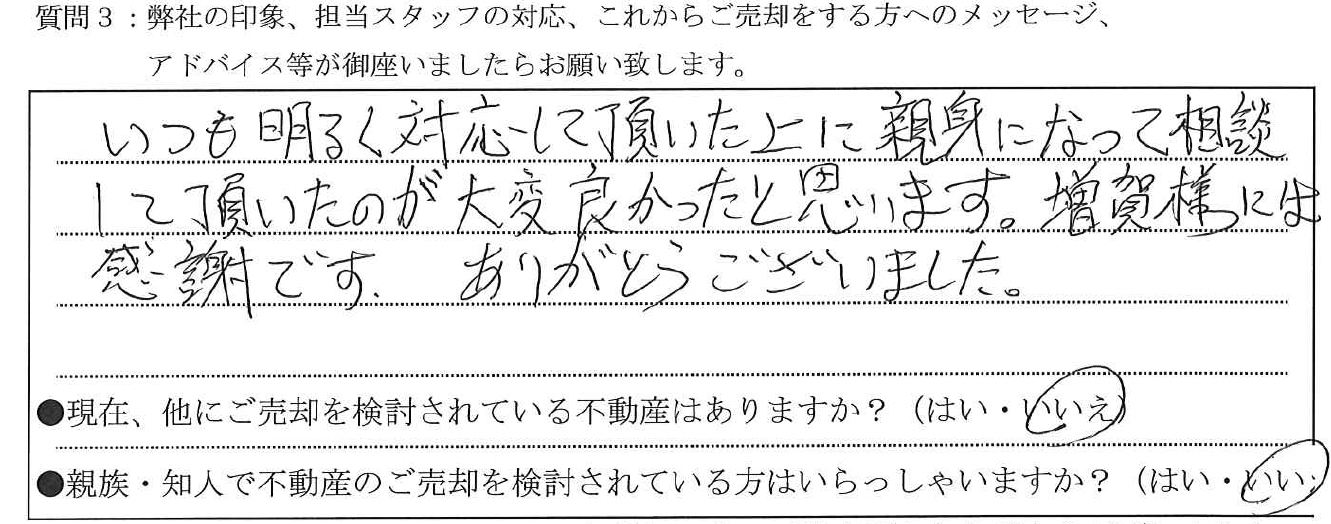 質問３：弊社の印象、担当スタッフの対応、これからご売却をする方へのメッセージ、
アドバイス等が御座いましたらお願い致します。
いつも明るく対応して頂いた上に親身になって相談
して頂いたのが大変良かったと思います。増賀様には
感謝です。ありがとうございました。
●現在、他にご売却を検討されている不動産はありますか？（はい・いいえ）
●親族・知人で不動産のご売却を検討されている方はいらっしゃいますか？（はい・いい